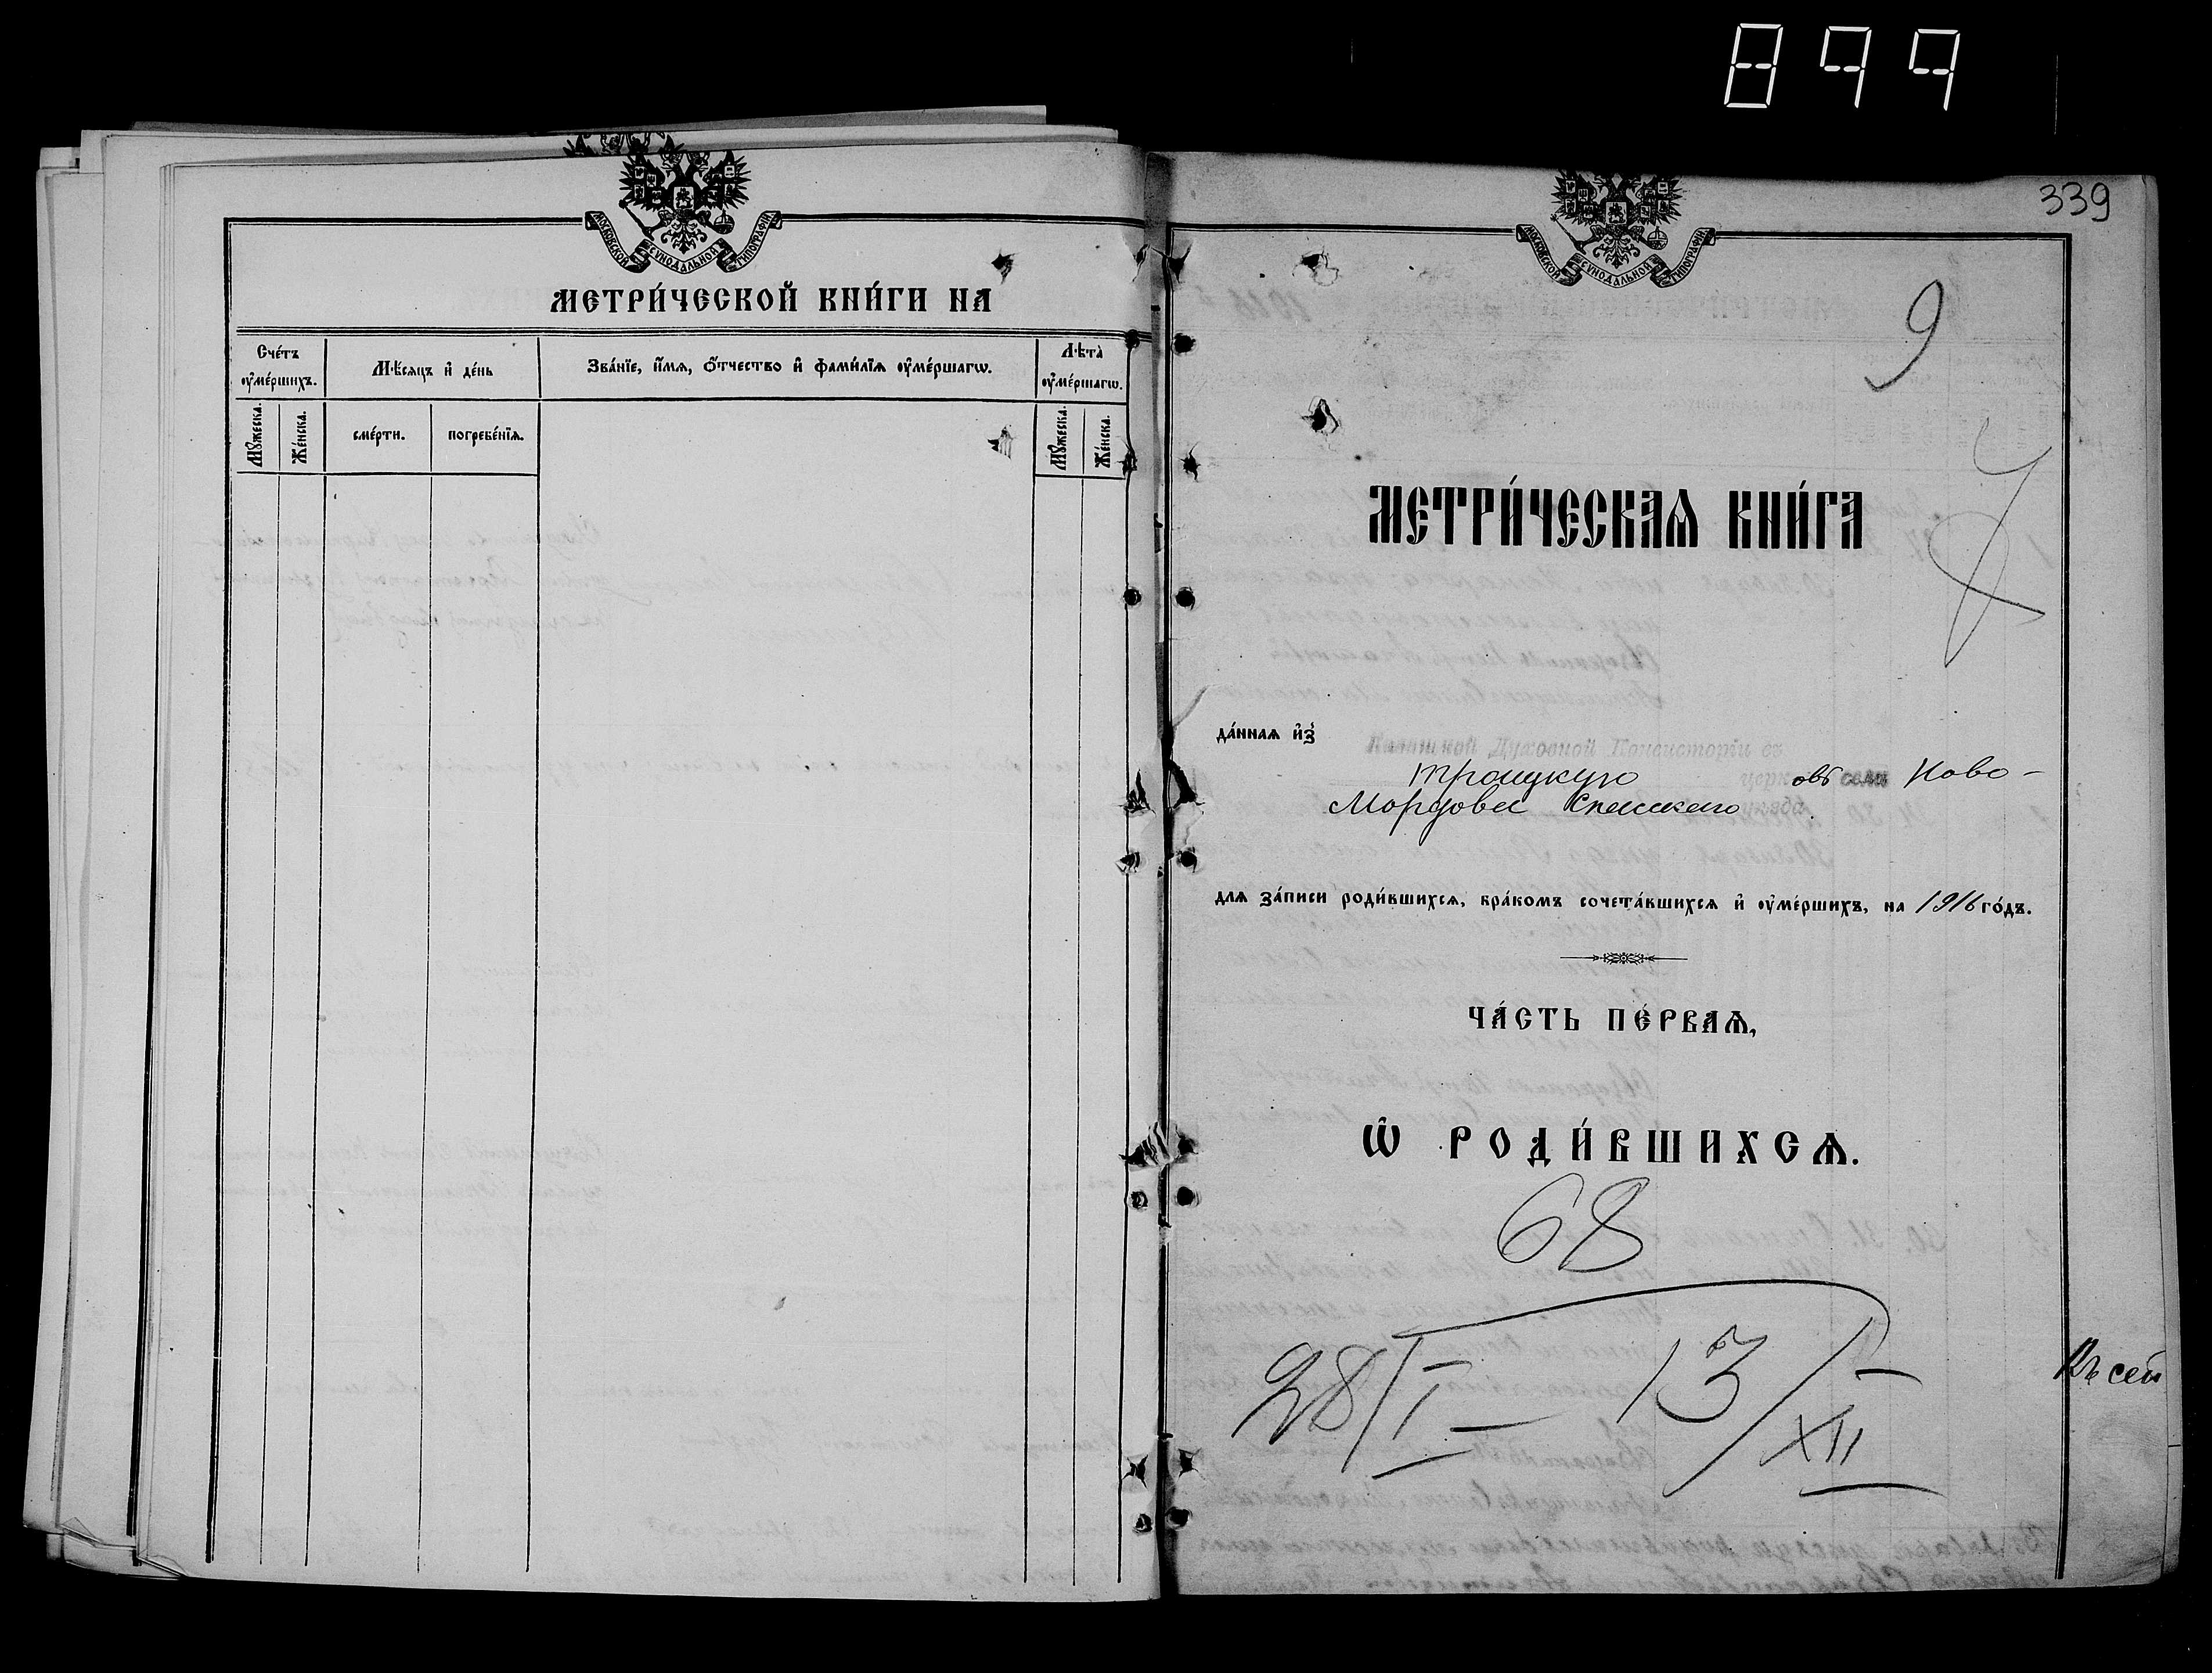 899
МОСКОВСКОЙ СѴНОДАЛЬНОЙ ТИПОГРАФІИ
МЕТРИ́ЧЕСКОЙ КНИ́ГИ НА
Сче́тъ ᲂу҆ме́ршихъ.
Мѣ́сяцъ и҆ де́нь
Зва́нїе, и҆́мѧ, ѻ҆́тчество и҆ фами́лїѧ ᲂу҆ме́ршагѡ.
Лѣ́та ᲂу҆ме́ршагѡ.
Мꙋ́жеска.
Же́нска.
сме́рти.
погребе́нїѧ.
Мꙋ́жеска.
Же́нска.
339
МОСКОВСКОЙ СѴНОДАЛЬНОЙ ТИПОГРАФІИ
9
МЕТРИ́ЧЕСКАѦ КНИ́ГА
да́ннаѧ и҆з̾ Казанской Духовной Консисторіи въ
Троицкую церк овь села Ново-
Мордовы Спасскаго уѣзда
длѧ за́писи роди́вшихсѧ, бра́комъ сочета́вшихсѧ и҆ ᲂу҆ме́ршихъ, на 1916 го́дъ.
ЧА́СТЬ ПЕ́РВАѦ,
Ѡ҆ РОДИ́ВШИХСѦ.
68
28/I – 13/XII
Къ сей